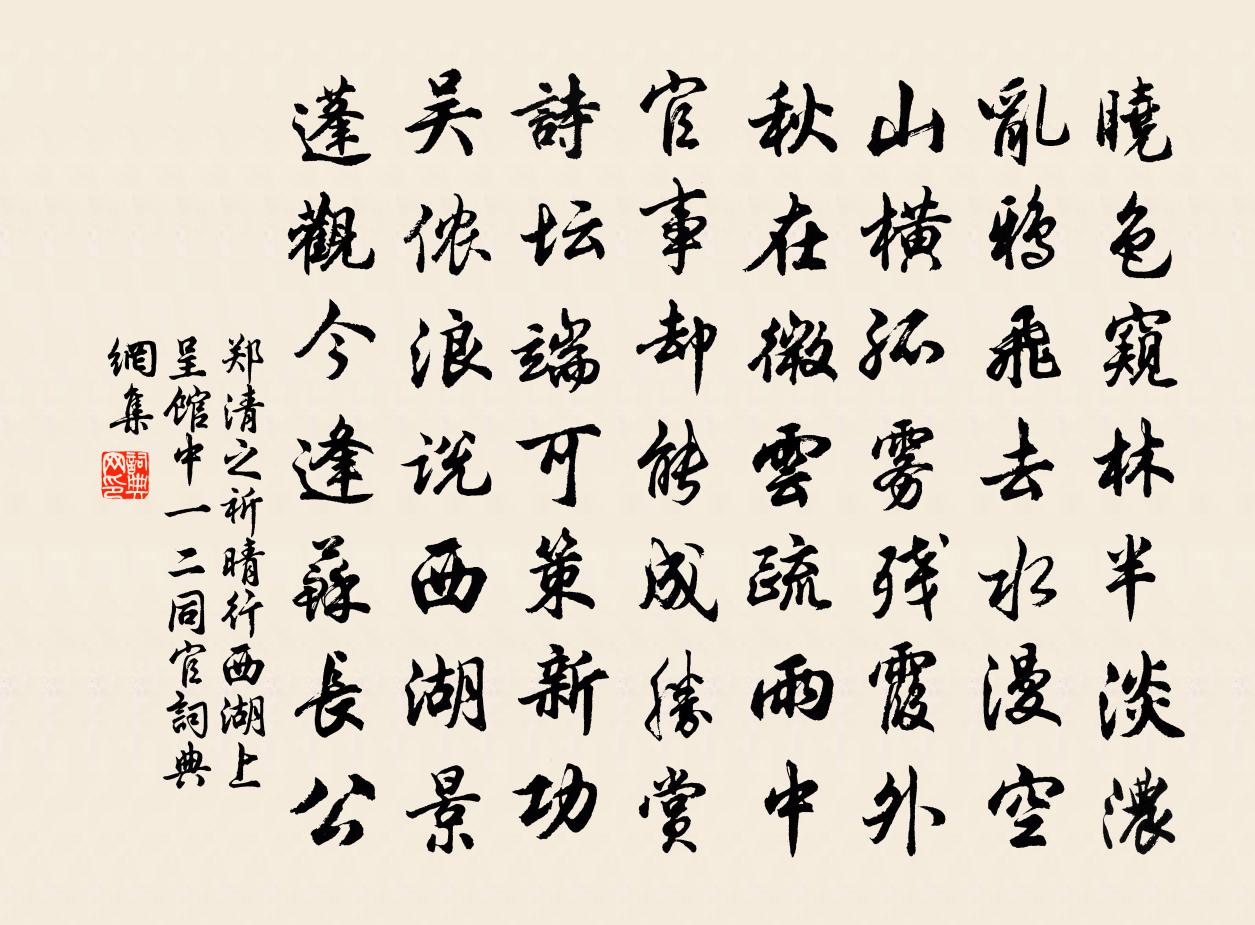 曉色窺林半淡濃
亂鴉飛去水漫空
山橫孤雾残霞外
秋在微雲疏雨中
官事却能成勝赏
詩坛端可策新功
吴侬浪说西湖景
蓬觀今逢蘇長公
郑清之祈晴行西湖上
呈馆中一二同官詞典
網集
詞典网印